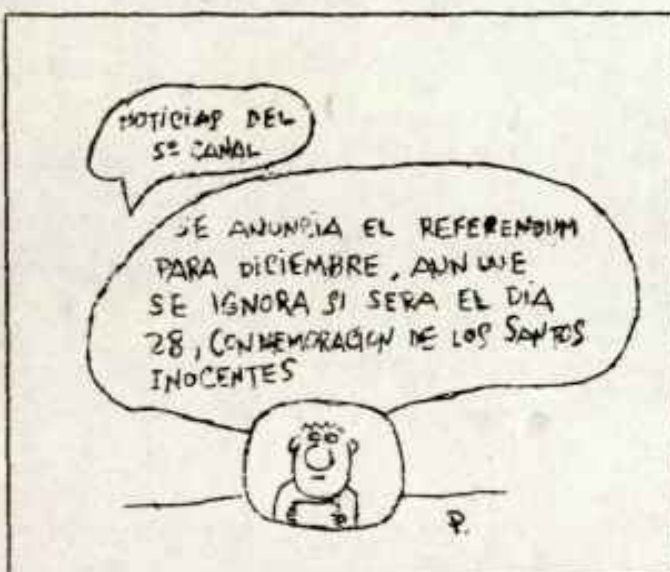 NOTICIAS DEL
5º CANAL
SE ANUNCIA EL REFERENDUM
PARA DICIEMBRE, AUNQUE
SE IGNORA SI SERA EL DIA
28, CONMEMORACION DE LOS SANTOS
INOCENTES
P.